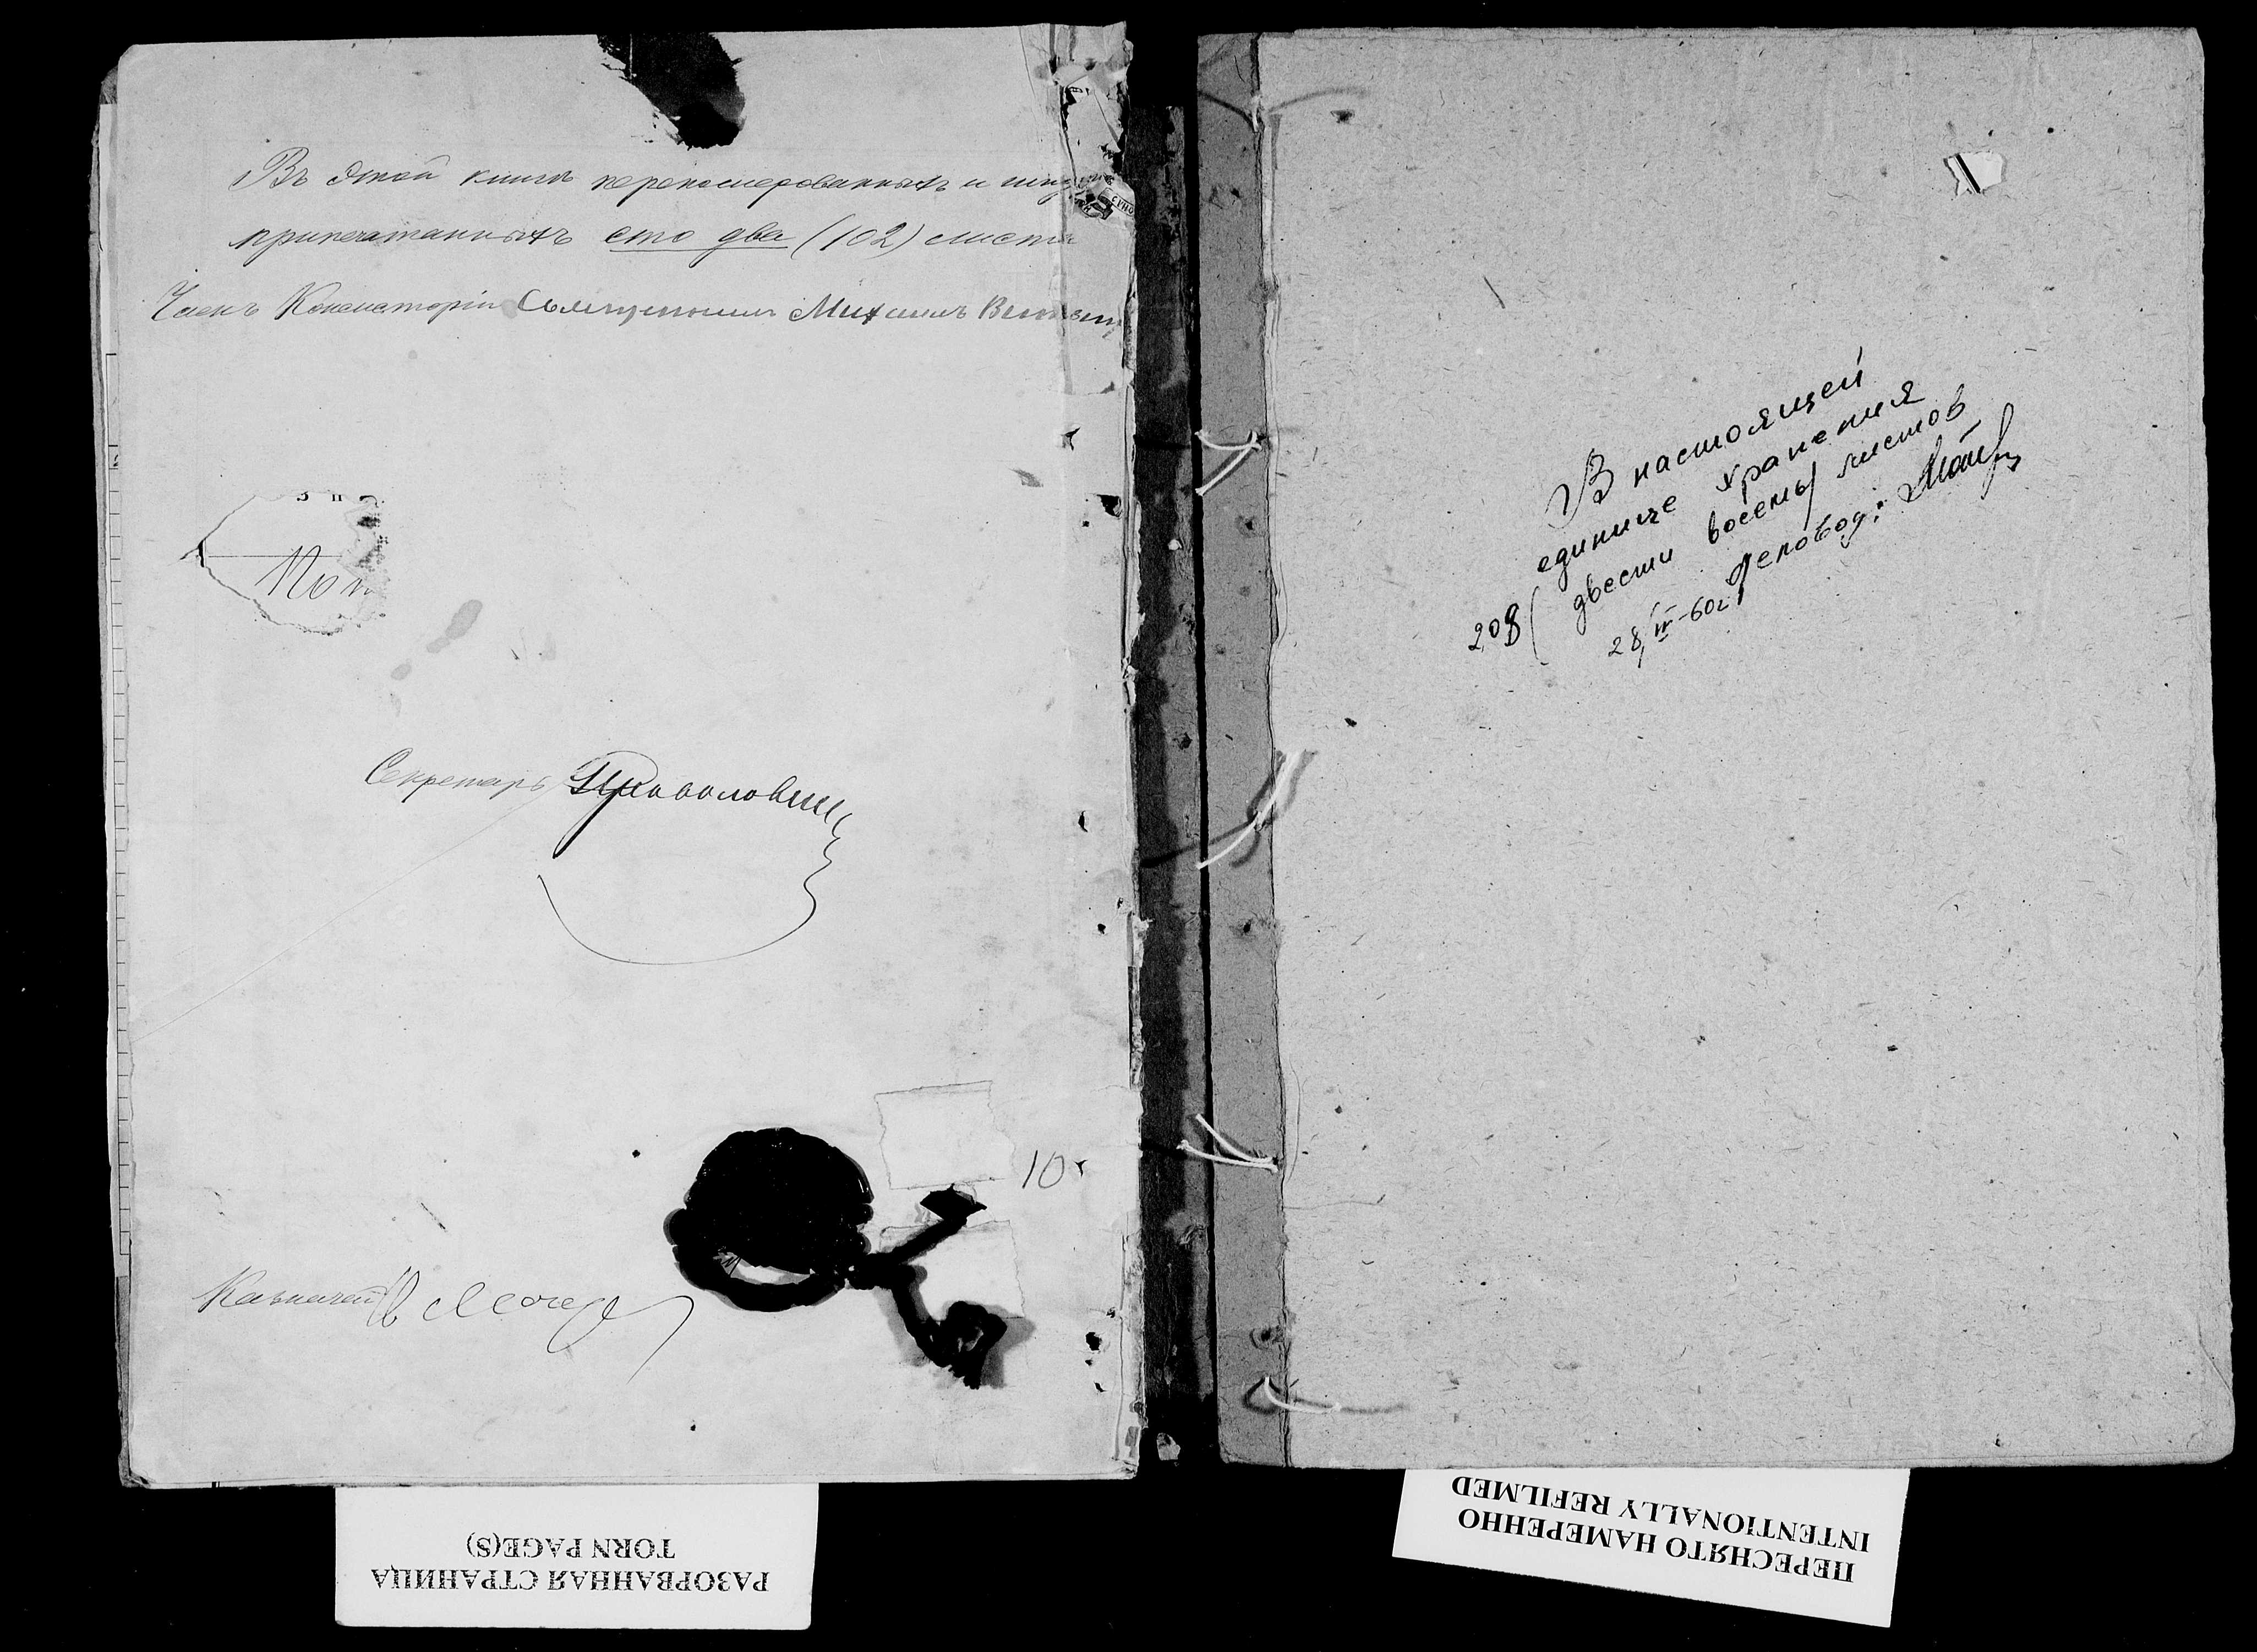 Въ этой книгѣ перенумерованныхъ и
припечатанныхъ сто два (102) листа
Членъ Консисторіи Священникъ Михаилъ
Секретарь
10
Казначей
РАЗОРВАННАЯ СТРАНИЦА
TORN PAGE(S)
В настоящей
единице хранения
208 ( двести восемь) листов
28/IV-60г Деловод:
ПЕРЕСНЯТО НАМЕРЕННО
INTENTIONALLY REFILMED